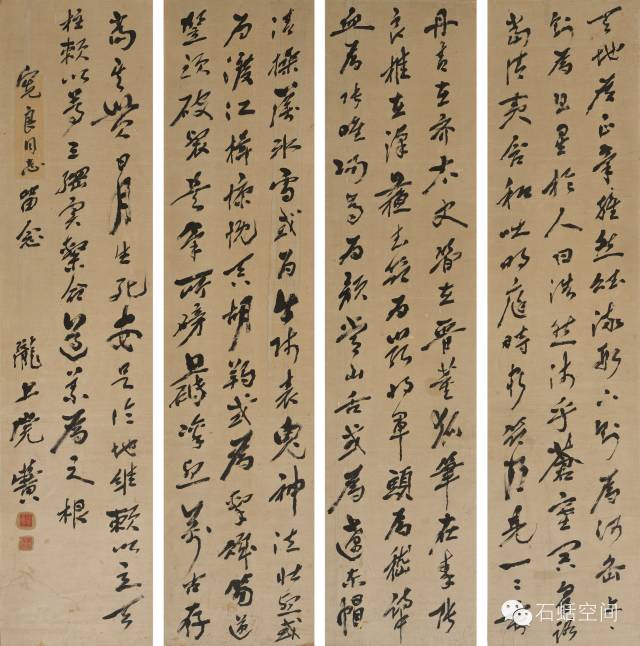 天地有正氣雜然賦流形下則為河嶽上
則為日星於人曰浩然沛乎蒼塞冥皇路
當清夷含和吐明庭時窮節乃見一一垂
丹青在齊太史簡在晉董狐筆在秦張
良椎在漢蘇武節為嚴將軍頭為嵇侍中
血為張睢陽齒為顏常山舌或為遼東帽
清操厲冰雪或為出師表鬼神泣壯烈或
為渡江楫慷慨吞胡羯或為擊賊笏逆
豎頭破裂是氣所磅礴凜烈萬古存
當其貫日月生死安足論地維賴以立天
柱賴以尊三綱實繫命道義為之根
寬良同志留念
隴上
石蛞空间